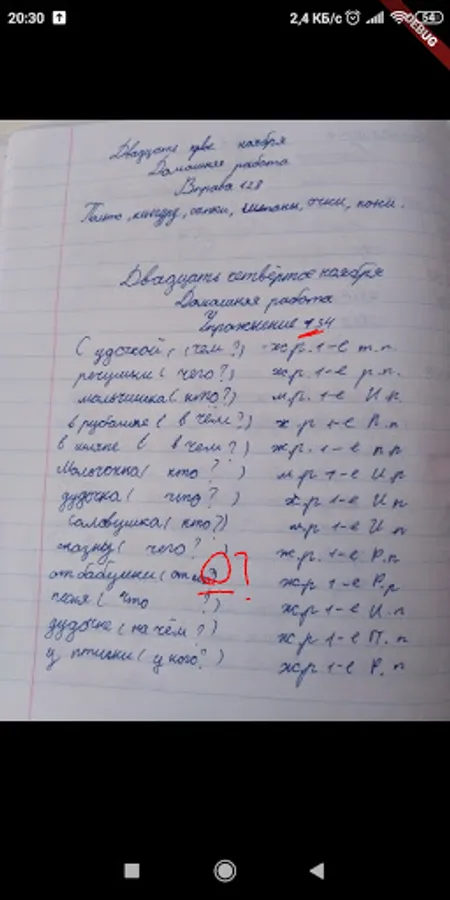 20:30 2,4 КБ/с 54
DEBUG
Двадцать ноября
Домашняя работа
Вправа 128
Пальто, кенгуру, очки, пони.
Двадцать четвёртое ноября
Домашняя работа
Упражнение 134
С удочкой (чем?) ж.р. 1-е т.п.
речушки (чего?) ж.р. 1-е р.п.
мальчишка (кто?) м.р. 1-е И.п
в рубашке (в чём?) ж р 1-е П.п
в шляпе ( в чем?) ж.р. 1-е п.п
(кто?) м.р 1-е И.р
дудочка (что?) 1-е И п
Соловушка (кто?) м.р 1-е И п
(чего?) ж.р. 1-е Р.п
от бабушки (от ?) ж.р 1-е Р.р
песня (что ?) ж.р 1-е И.п
дудочке (на чём?) ж.р 1-е П.п
у птички (у кого?) ж.р 1-е Р.п
О?